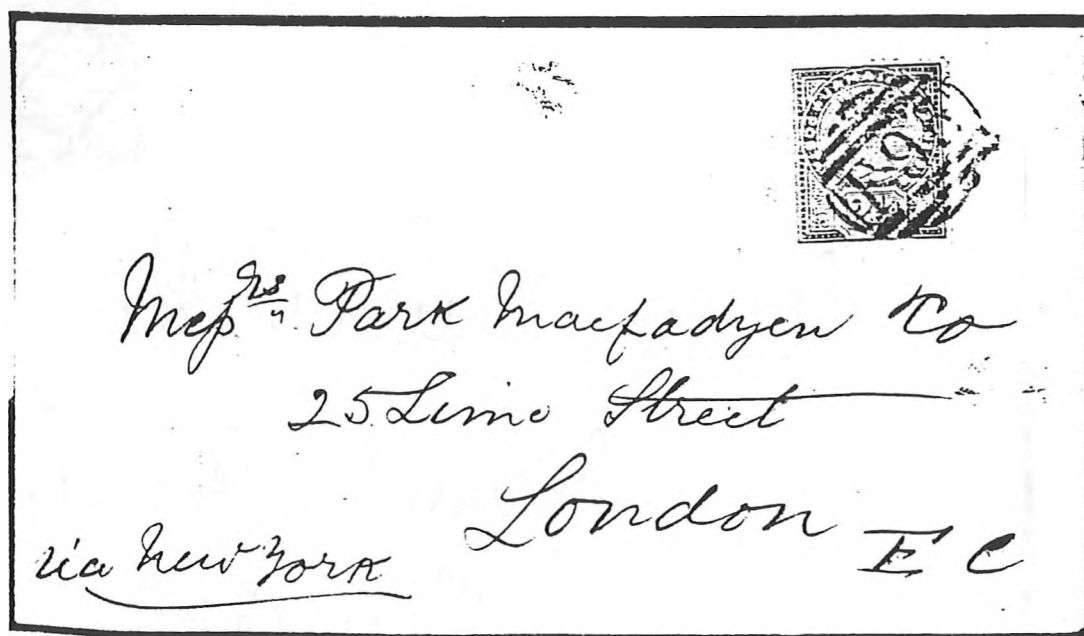 Messrs Park Macfadyen & Co
25 Lime Street
London E C
via New York